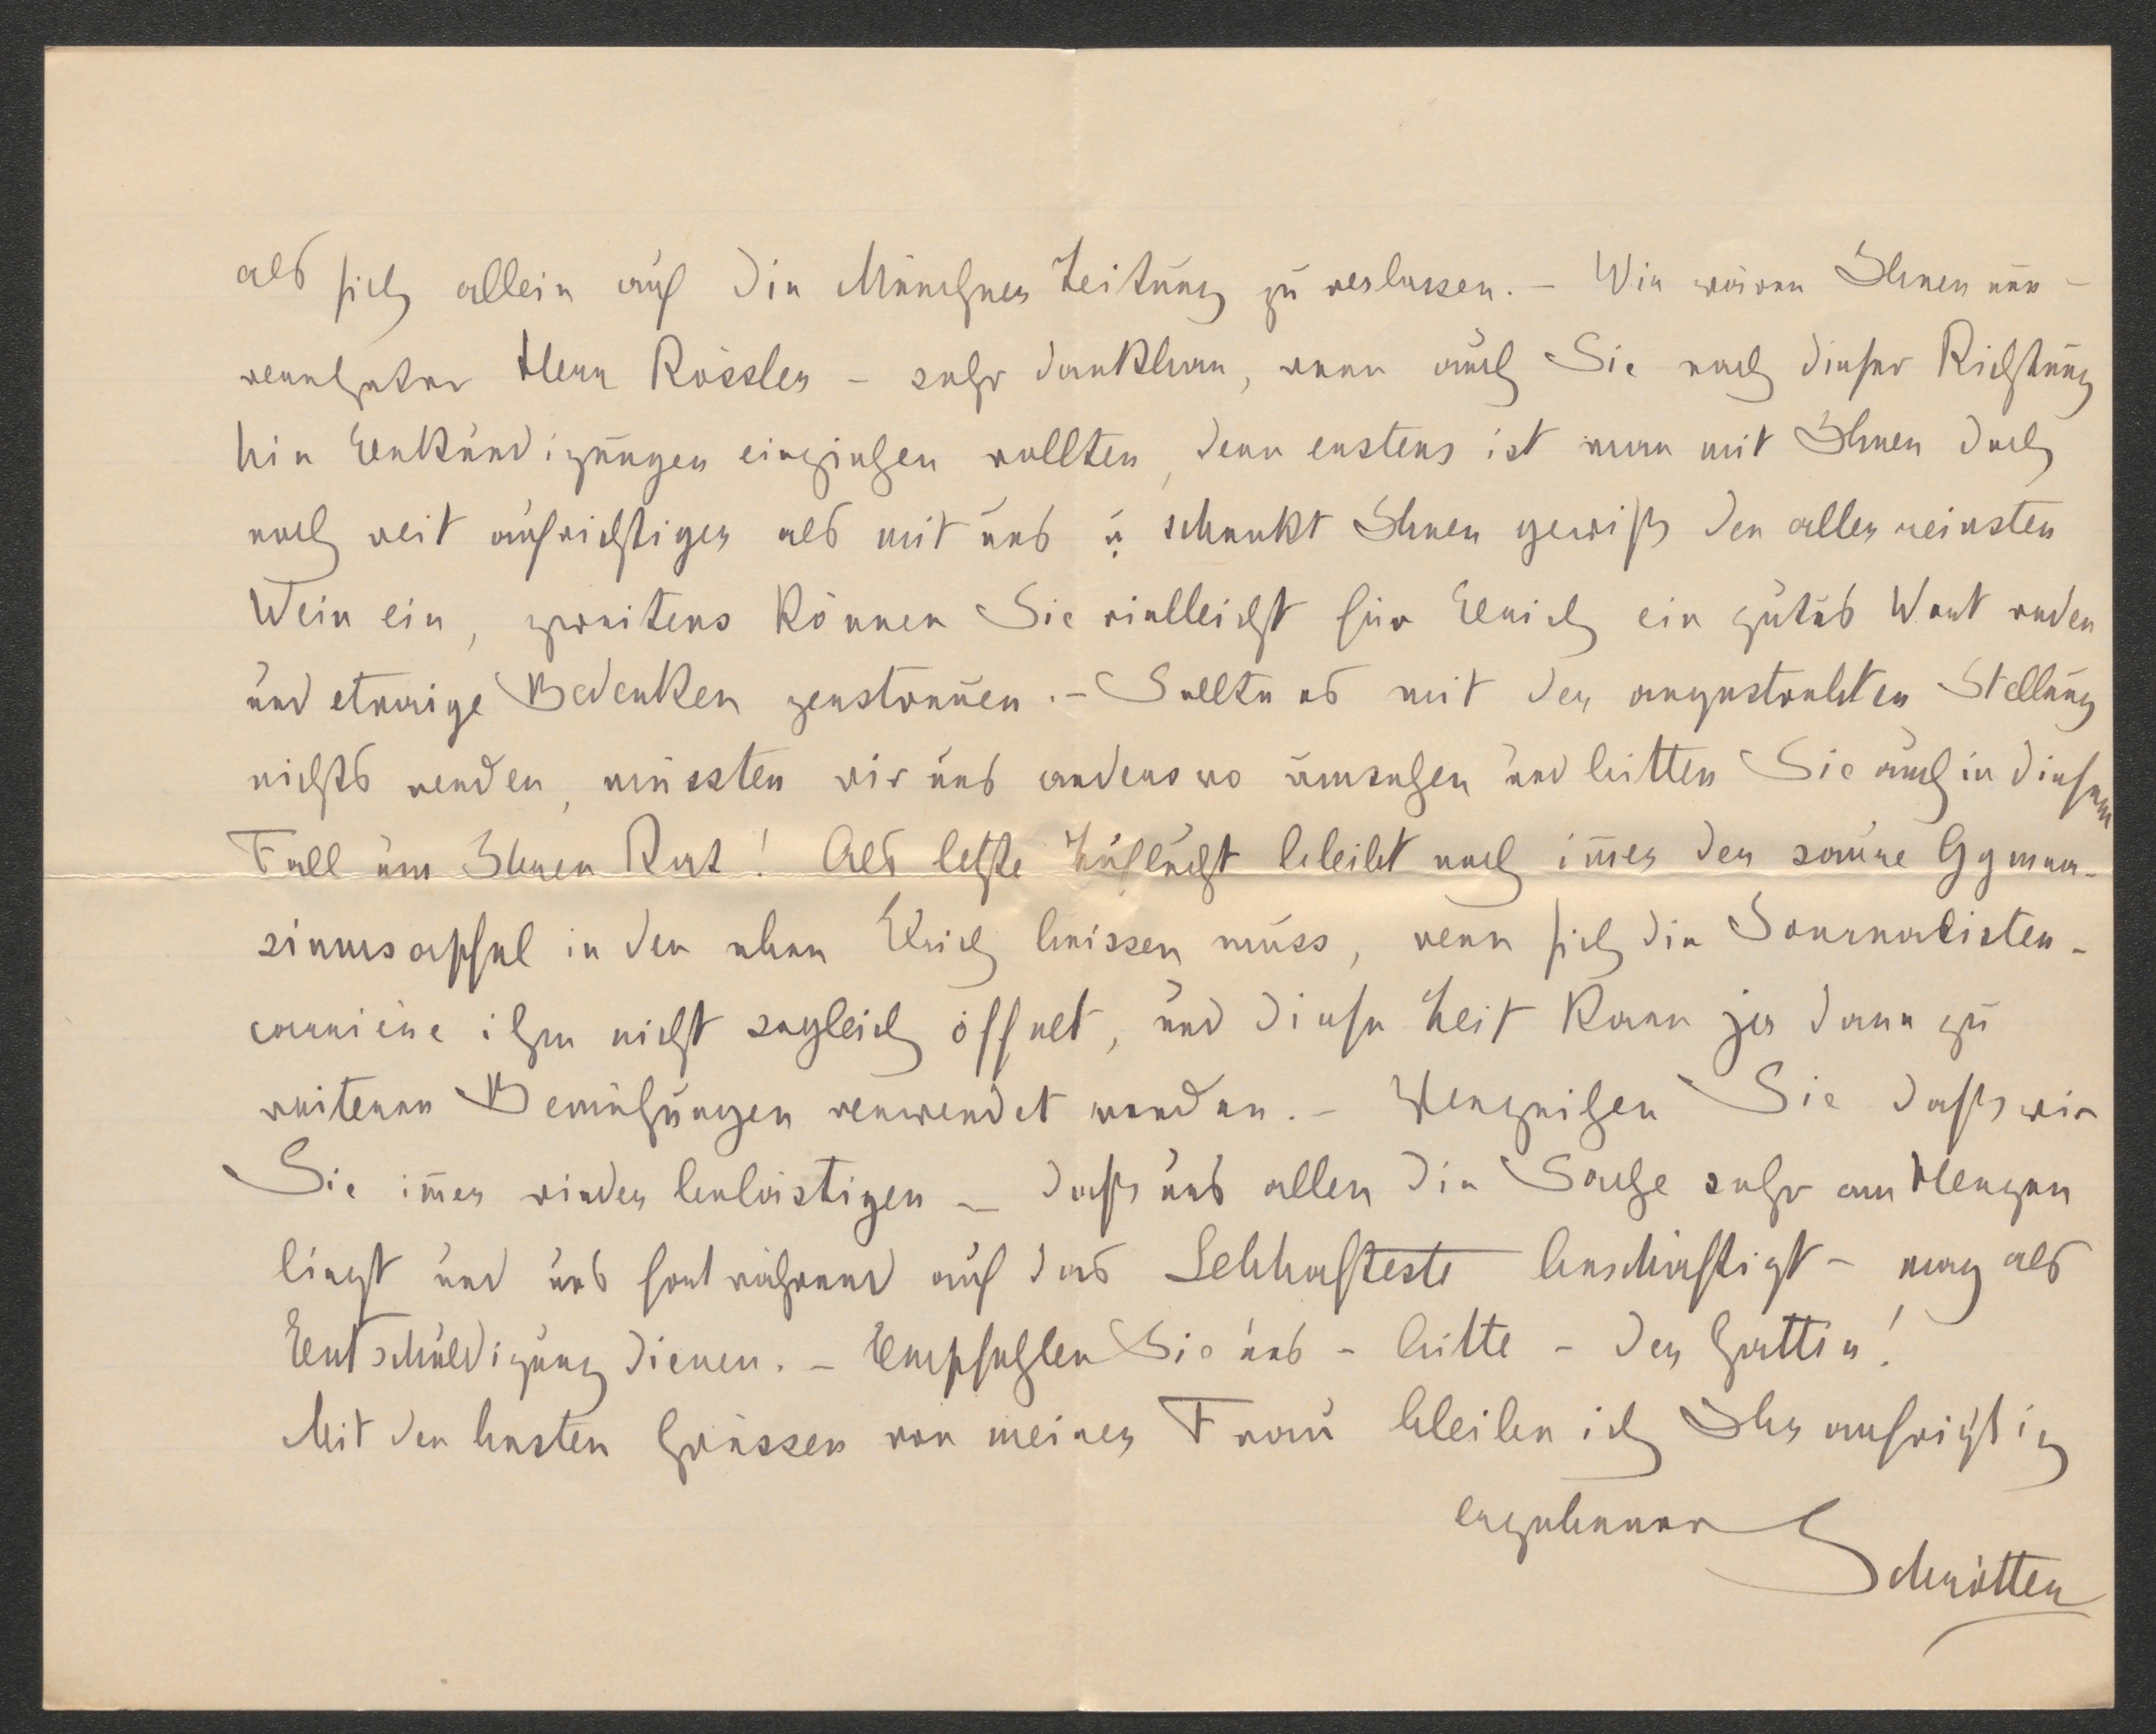 als sich allein auf die Münchner Zeitung zu verlassen. – Wir wären Ihnen nun –
verehrter Herr Rössler – sehr dankbar, wenn auch Sie nach dieser Richtung
hin Erkundigungen einziehen wollten, denn erstens ist man mit Ihnen doch
noch weit aufrichtiger als mit uns u schenkt Ihnen gewiß den aller reinsten
Wein ein, zweitens können Sie vielleicht für Erich ein gutes Wort reden
und etwaige Bedenken zerstreuen. – Sollte es mit der angestrebten Stellung
nichts werden, müssten wir uns anderswo umsehen und bitten Sie auch in diesem
Fall um Ihren Rat! Als letzte Zuflucht bleibt noch im̄er der saure Gymna-
siumsapfel in den eben Erich beissen muss, wenn sich die Journalisten-
carrière ihm nicht sogleich öffnet, und diese Zeit kann ja dann zu
weiteren Bemühungen verwendet werden. – Verzeihen Sie daß wir
Sie im̄er wieder belästigen – daß uns allen die Sache sehr am Herzen
liegt und uns fortwährend auf das Lebhafteste beschäftigt – mag als
Entschuldigung dienen. – Empfehlen Sie uns – bitte – der Gattin!
Mit den besten Grüssen von meiner Frau bleibe ich Ihr aufrichtig
ergebener Schrötter